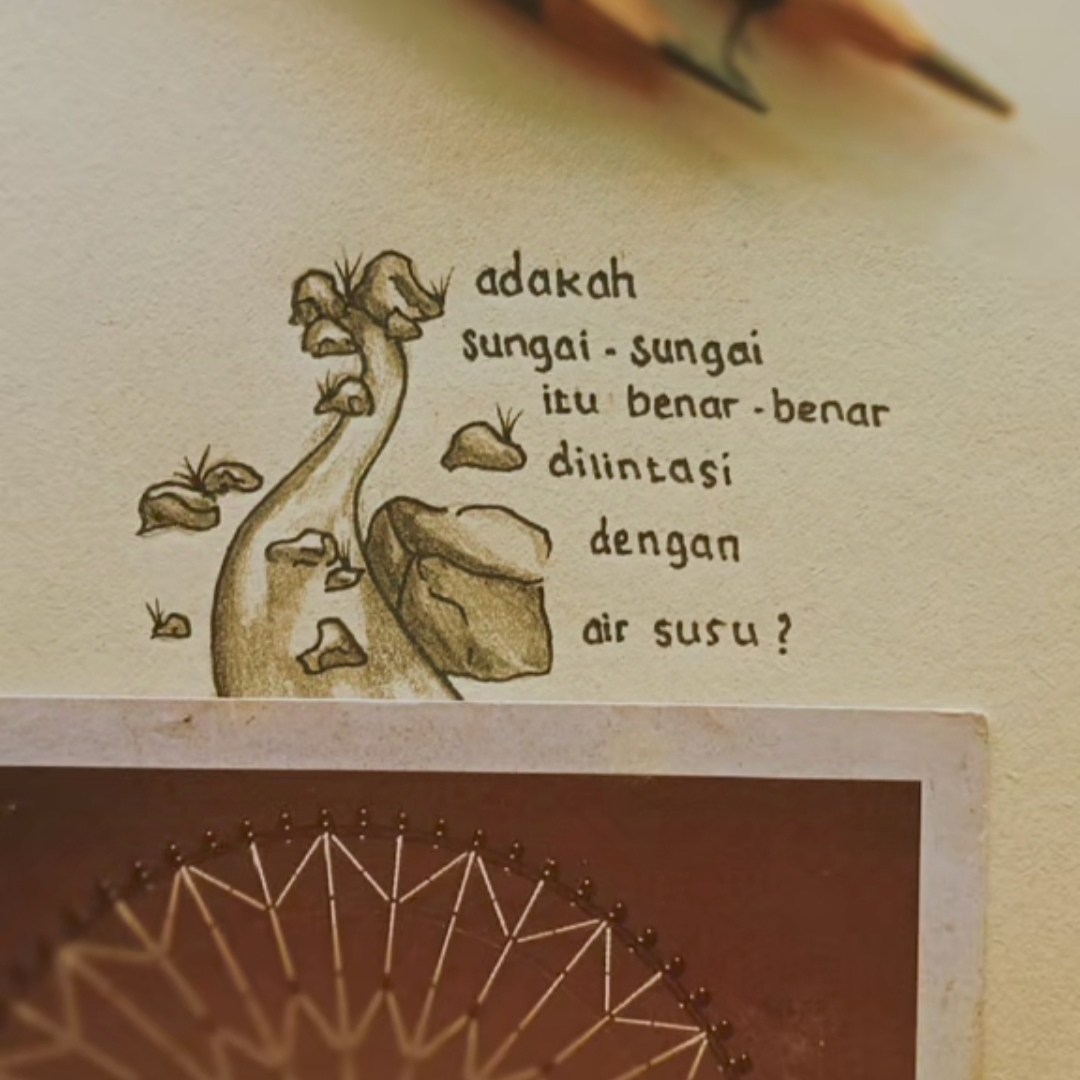 adakah
sungai - sungai
itu benar - benar
dilintasi
dengan
air susu ?